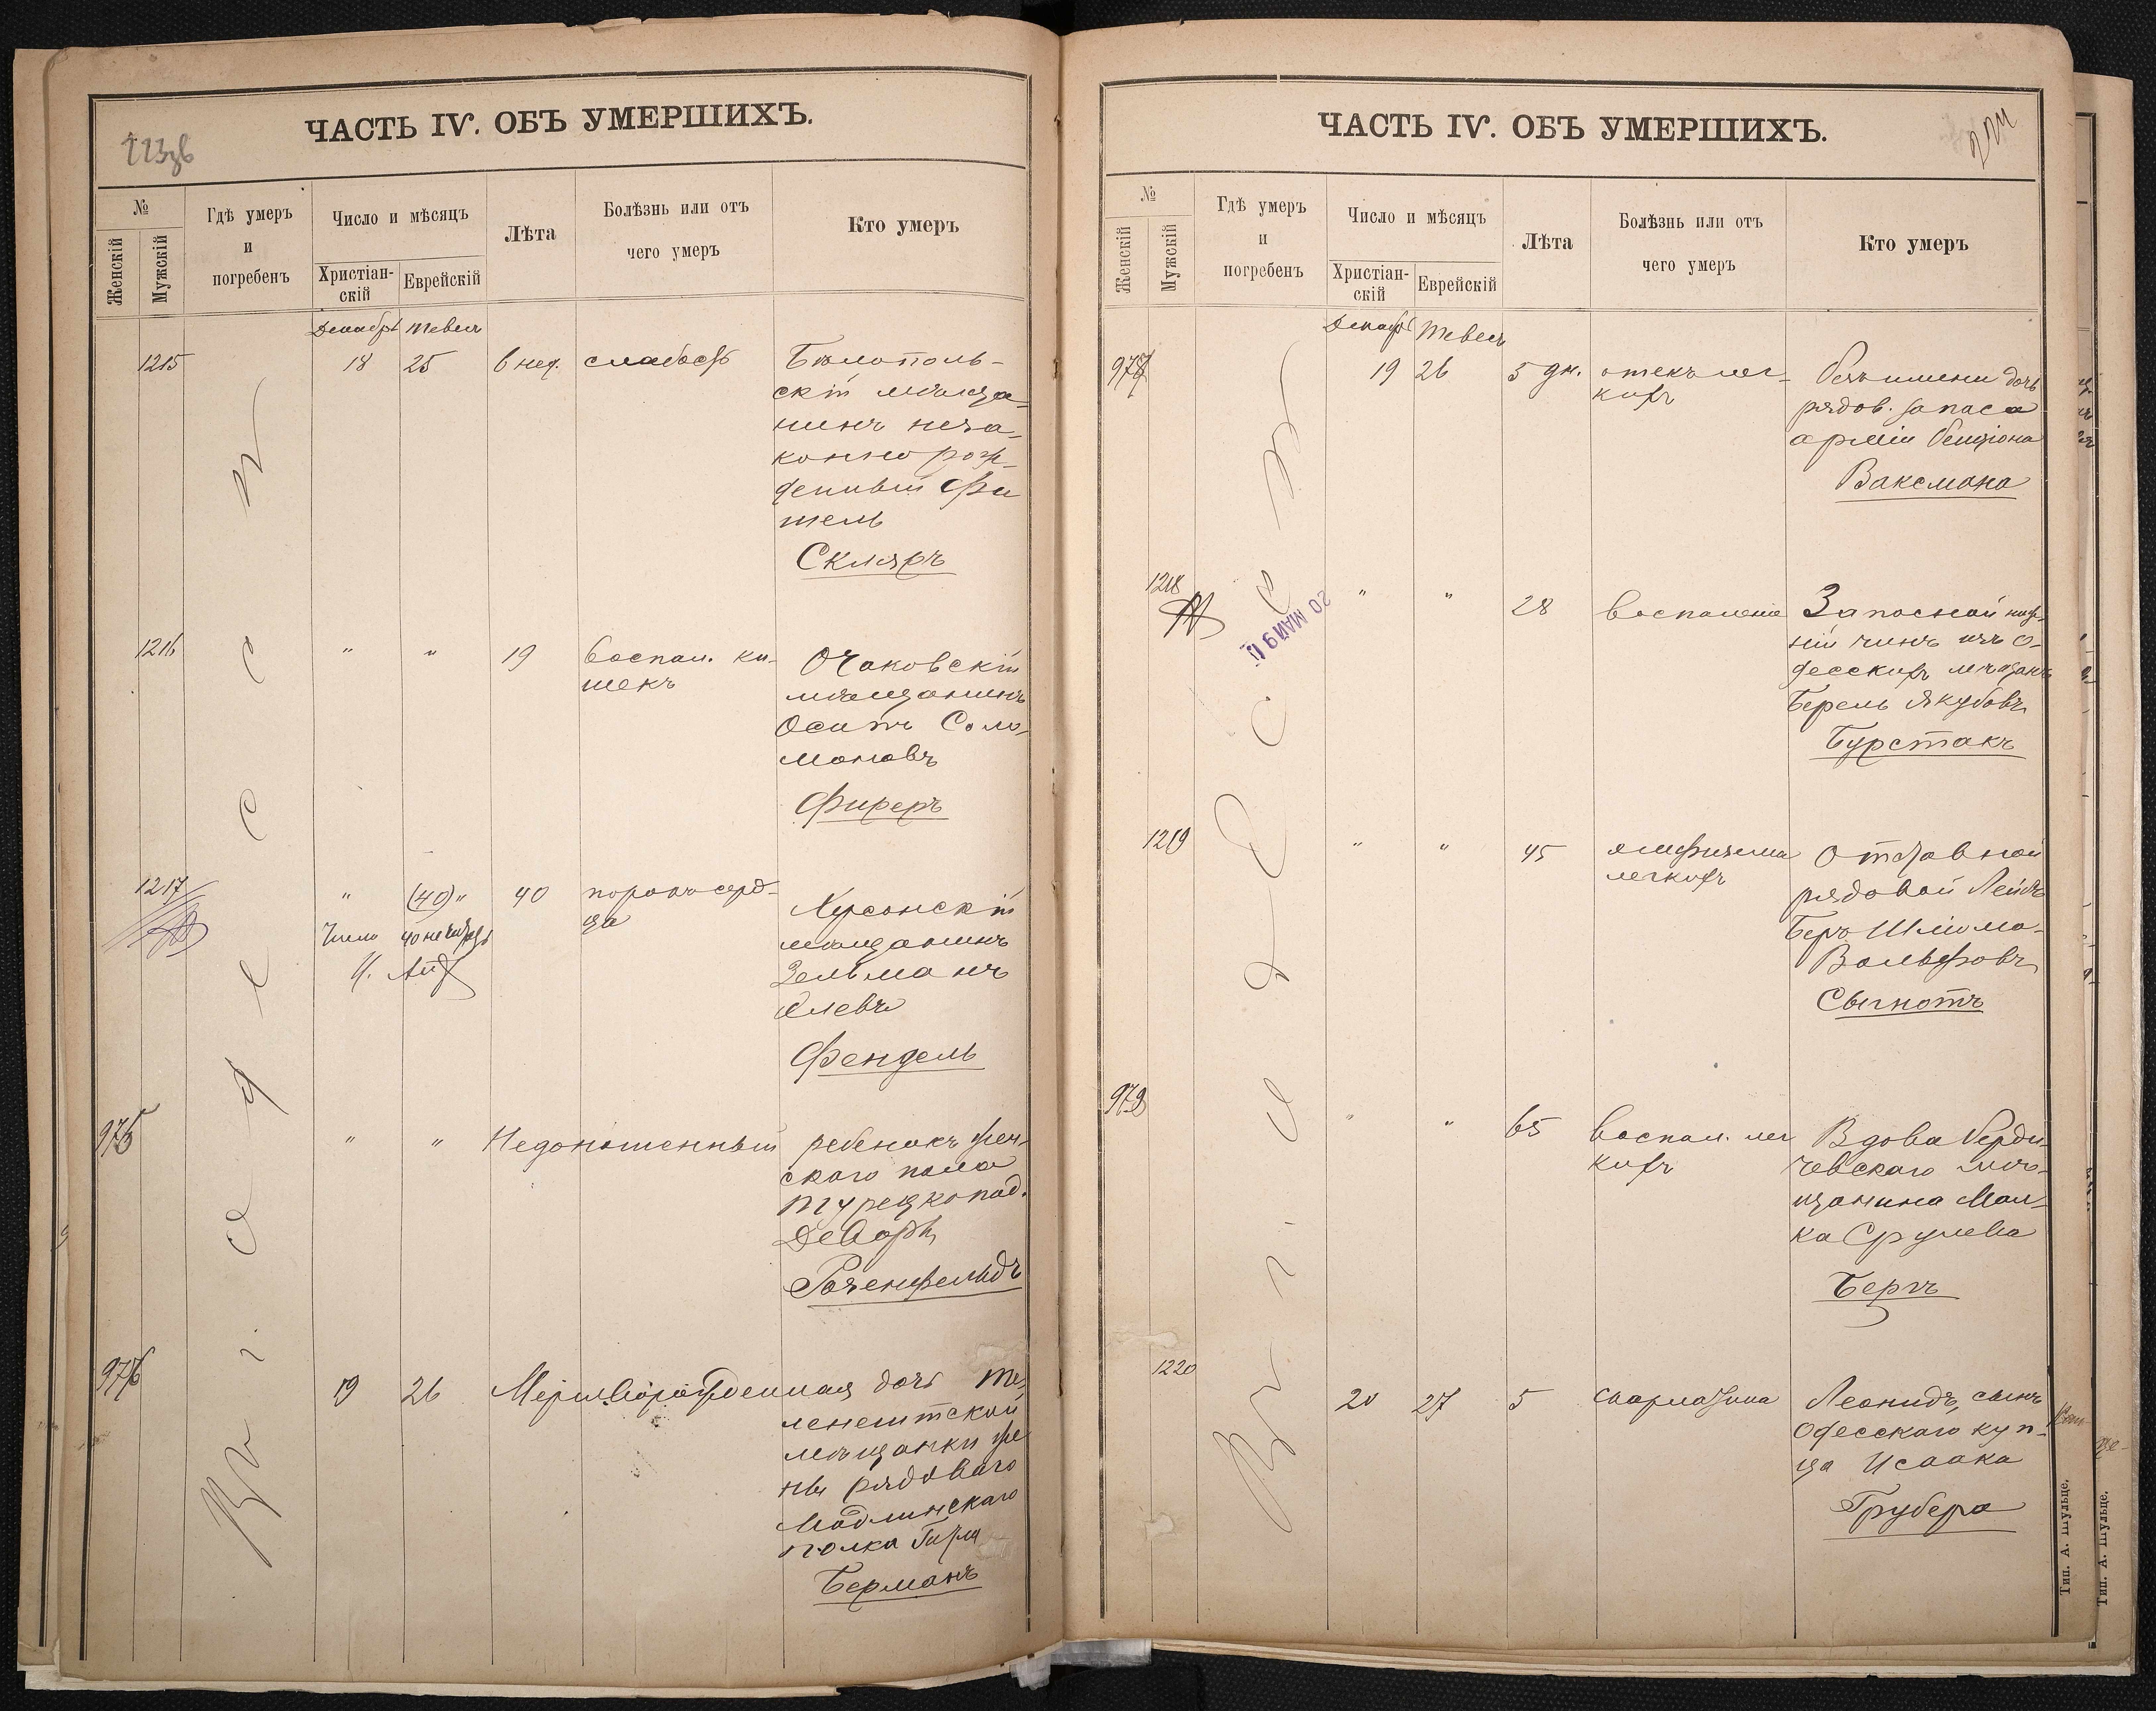 ЧАСТЬ IV. ОБЪ УМЕРШИХЪ.
№
Женскій
Мужскій
Гдѣ умеръ
и
погребенъ
Число и мѣсяцъ
Христіан-
скій
Еврейскій
Лѣта
Болѣзнь или отъ
чего умеръ
Кто умеръ
Декабрь Тевесъ
1215 18 25 6 нед. слабость Бѣлополь-
скій мѣща-
нинъ неза-
коннорож-
денный Фи
шель
Скляръ
1216 " " 19 воспал. ки-
шекъ
Очаковскій
мѣщанинъ
Осипъ Соло-
моновъ
Фиреръ
1217 " (40) " 40 порокъ серд-
ца
Число 40 не читать
Херсонскій
мѣщанинъ
Зельманъ
Елевъ
Фендель
975 " " Недоношенный ребенокъ жен-
скаго пола
турецкопод.
Деворы
Розенфельдъ
976 19 26 Мертворожденная дочь Те-
ленештской
мѣщанки же
ны рядоваго
Модлинскаго
полка
Берманъ
въ г. Одессѣ
ЧАСТЬ IV. ОБЪ УМЕРШИХЪ.
224
№
Женскій
Мужскій
Гдѣ умеръ
и
погребенъ
Число и мѣсяцъ
Христіан-
скій
Еврейскій
Лѣта
Болѣзнь или отъ
чего умеръ
Кто умеръ
Декабрь Тевесъ
978 19 26 5 дн. отекъ лег-
кихъ
безъ имени дочь
рядов. запаса
арміи Бенціона
Ваксмана
1218 " " 28 воспаленіе Запасной ниж-
ній чинъ изъ О-
десскихъ мѣщанъ
Берель Якубовъ
Бурстакъ
20 МАЙ 91
1219 " " 45 эмфизема
легкихъ
Отставной
рядовой Лейзъ
Беръ Шліома-
Вольфовъ
Сыгнотъ
979 " " 65 воспал. лег
кихъ
Вдова Берди-
чевскаго мѣ-
щанина Мал-
ка Срулева
Бергъ
1220 20 27 5 скарлатина Леонидъ, сынъ
Одесскаго куп-
ца Исаака
Грубера
въ г. Одессѣ
Тип. А. Шульце.
Тип. А. Шульце.